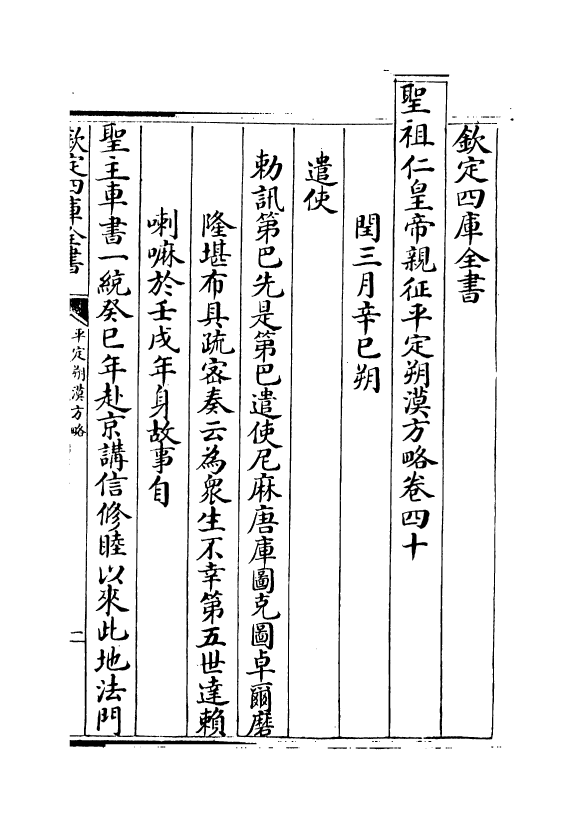 欽定四庫全書
聖祖仁皇帝親征平定朔漠方略卷四十
閏三月辛巳朔
遣使
勅訊第巴先是第巴遣使尼麻唐庫圖克圖卓爾磨
隆堪布具疏密奏云為衆生不幸第五世達賴
喇嘛於壬戌年身故事自
聖主車書一統癸巳年赴京講信修睦以來此地法門
欽定四庫全書
平定朔漠方略